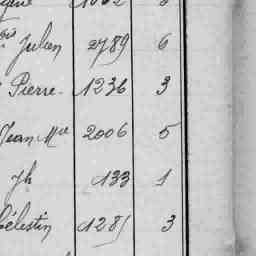 1002
ois Julien 2789 6
Pierre 1236 3
Jean Mie 2006 5
Jh 133 1
Célestin 1285 3